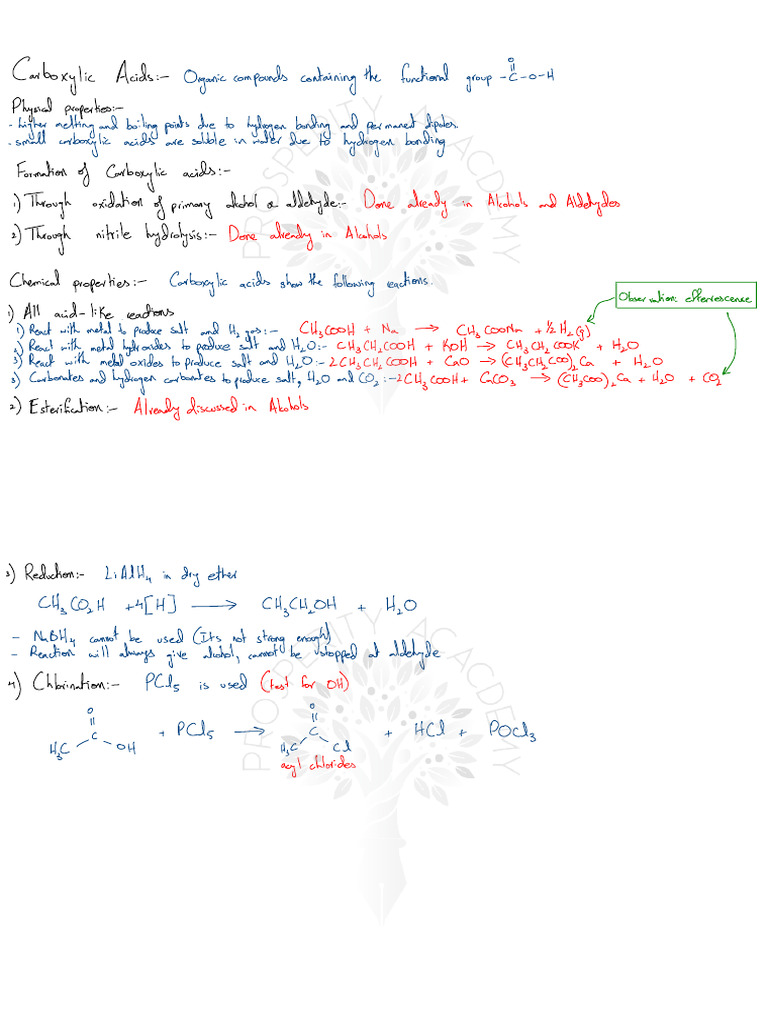 Carboxylic Acids:- Organic compounds containing the functional group -C-O-H
O
Physical properties:-
- higher melting and boiling points due to hydrogen bonding and permanent dipoles.
- small carboxylic acids are soluble in water due to hydrogen bonding
Formation of Carboxylic acids:-
1) Through oxidation of primary alcohol or aldehyde:- Done already in Alcohols and Aldehydes
2) Through nitrile hydrolysis:- Done already in Alcohols
Chemical properties:- Carboxylic acids show the following reactions.
Observation: effervescence
1) All acid-like reactions
1) React with metal to produce salt and H₂ gas:- CH₃COOH + Na → CH₃COONa + ½H₂(g)
2) React with metal hydroxides to produce salt and H₂O:- CH₃CH₂COOH + KOH → CH₃CH₂COOK + H₂O
3) React with metal oxides to produce salt and H₂O:- 2CH₃CH₂COOH + CaO → (CH₃CH₂COO)₂Ca + H₂O
3) Carbonates and hydrogen carbonates to produce salt, H₂O and CO₂:- 2CH₃COOH + CaCO₃ → (CH₃COO)₂Ca + H₂O + CO₂
2) Esterification:- Already discussed in Alcohols
3) Reduction:- LiAlH₄ in dry ether
CH₃CO₂H + 4[H] → CH₃CH₂OH + H₂O
- NaBH₄ cannot be used (Its not strong enough)
- Reaction will always give alcohol, cannot be stopped at aldehyde
4) Chlorination:- PCl₅ is used (test for OH)
O
C
H₃C OH + PCl₅ →
O
C
H₃C Cl + HCl + POCl₃
acyl chlorides
PROSPERITY ACADEMY
PROSPERITY ACADEMY